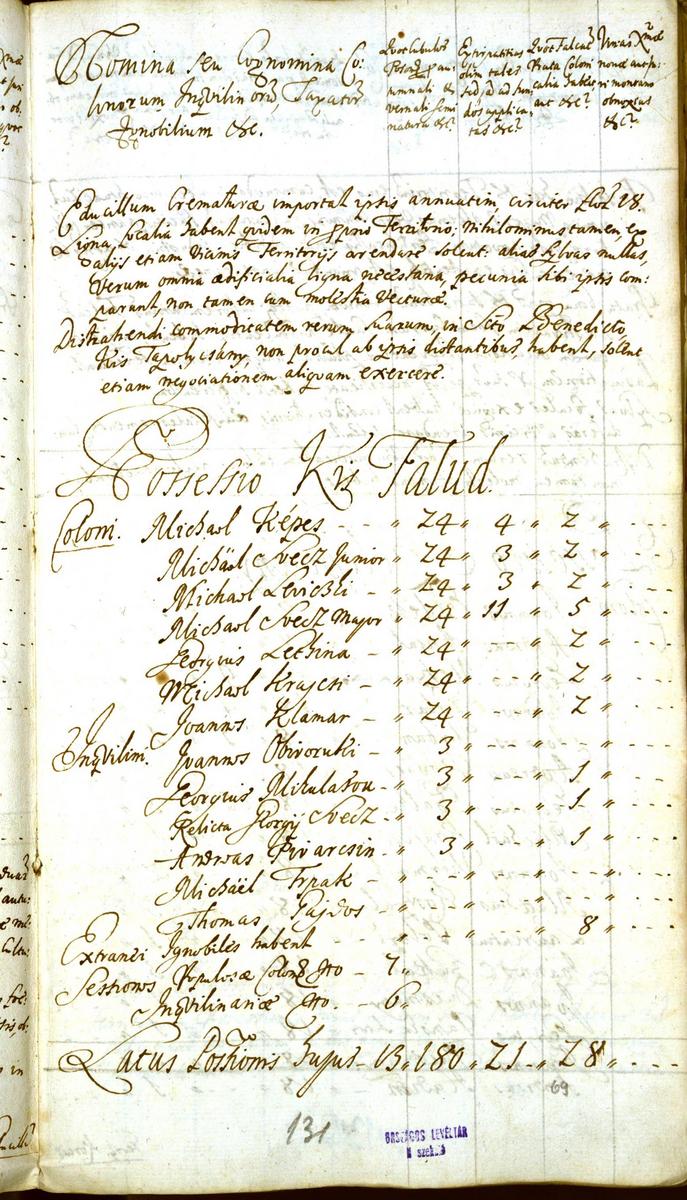 Nomina seu Cognomina Co:
lonorum Inqvilinorũ Taxator̃
Ignobilium &c.
Quot Cubulos
Poson
tumnali &
vernali semi
naturæ &c?
Extirpatitias
olim tales
sed id ad fun
dos applica
tas &c?
Quot Falcar̃
Prata Coloni
calia habe
ant &c?
Vineas Xmæ
nonæ aut
ri montano
obnoxias
&c?
Educillum Crematuræ importat ipsis annuatim, circiter flor 28.
Ligna focalia habent quidem in proprio Territorio; nihilominus tamen, ex
alijs etiam vicinis Territorijs arendare solent: alias sylvas nullas,
Verum omnia ædificialia ligna necessaria, pecunia sibi ipsis com:
parant, non tamen cum molestia vecturæ.
Distrahendi commoditatem rerum suarum, in Scto Benedicto
Kis Tapolycsány, non procul ab ipsis distantibus, habent, solent
etiam negociationem aliquam exercere.
Possessio Kis Falud.
Coloni. Michael Képes - - " 24 " 4 " 2 " - - -
Michäel Svecz Junior " 24 " 3 " 2 " - - -
Michael Leviczki - " 24 " 3 " 2 " - - -
Michael Svecz Major " 24 " 11 " 5 " - - -
Georgius Lechina - " 24 " - - " 2 " - - -
Michael Krajcsi - " 24 " - - " 2 " - - -
Joannes Klamar - " 24 " - - " 2 " - - -
Inqvilini. Joannes Obivoruki - " 3 " - - " - - " - - -
Georgius Mikulasou - " 3 " - - " 1 " - - -
Relicta Georgij Svecz - " 3 " - - " 1 " - - -
Andreas Pivarcsin - " 3 " - - " 1 " - - -
Michäel Trpak - " - - " - - " - - " - - -
Thomas Pajdos - " - - " - - " - - " - - -
Extranei Ignobiles habent - - " - - " - - " 8 " - - -
Sessiones Populosæ Colon - 7 "
Inqvilinariæ - 6 "
Latus Possessionis hujus - 13 " 180 " 21 - " 28 " - - -
69
131
ORSZÁGOS LEVÉLTÁR